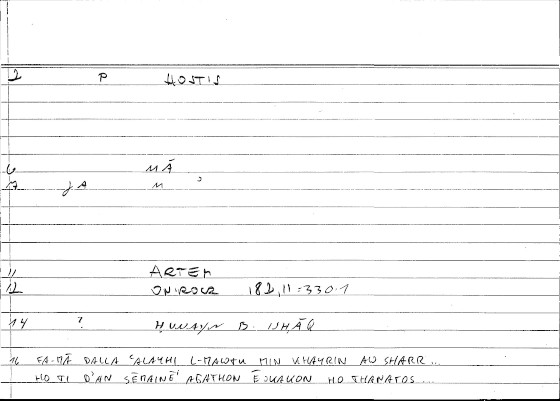 2 P HOSTIS
6 MĀ
7 JA M ʾ
11 ARTEM
12 ONIROCR 182,11=330.1
14 ? ḤUNAYN B. ISḤĀQ
16 FA-MĀ DALLA ʿALAYHI L-MAWTU MIN KHAYRIN AU SHARR...
HO TI D'AN SĒMAINĒ AGATHON Ē KAKON HO THANATOS...